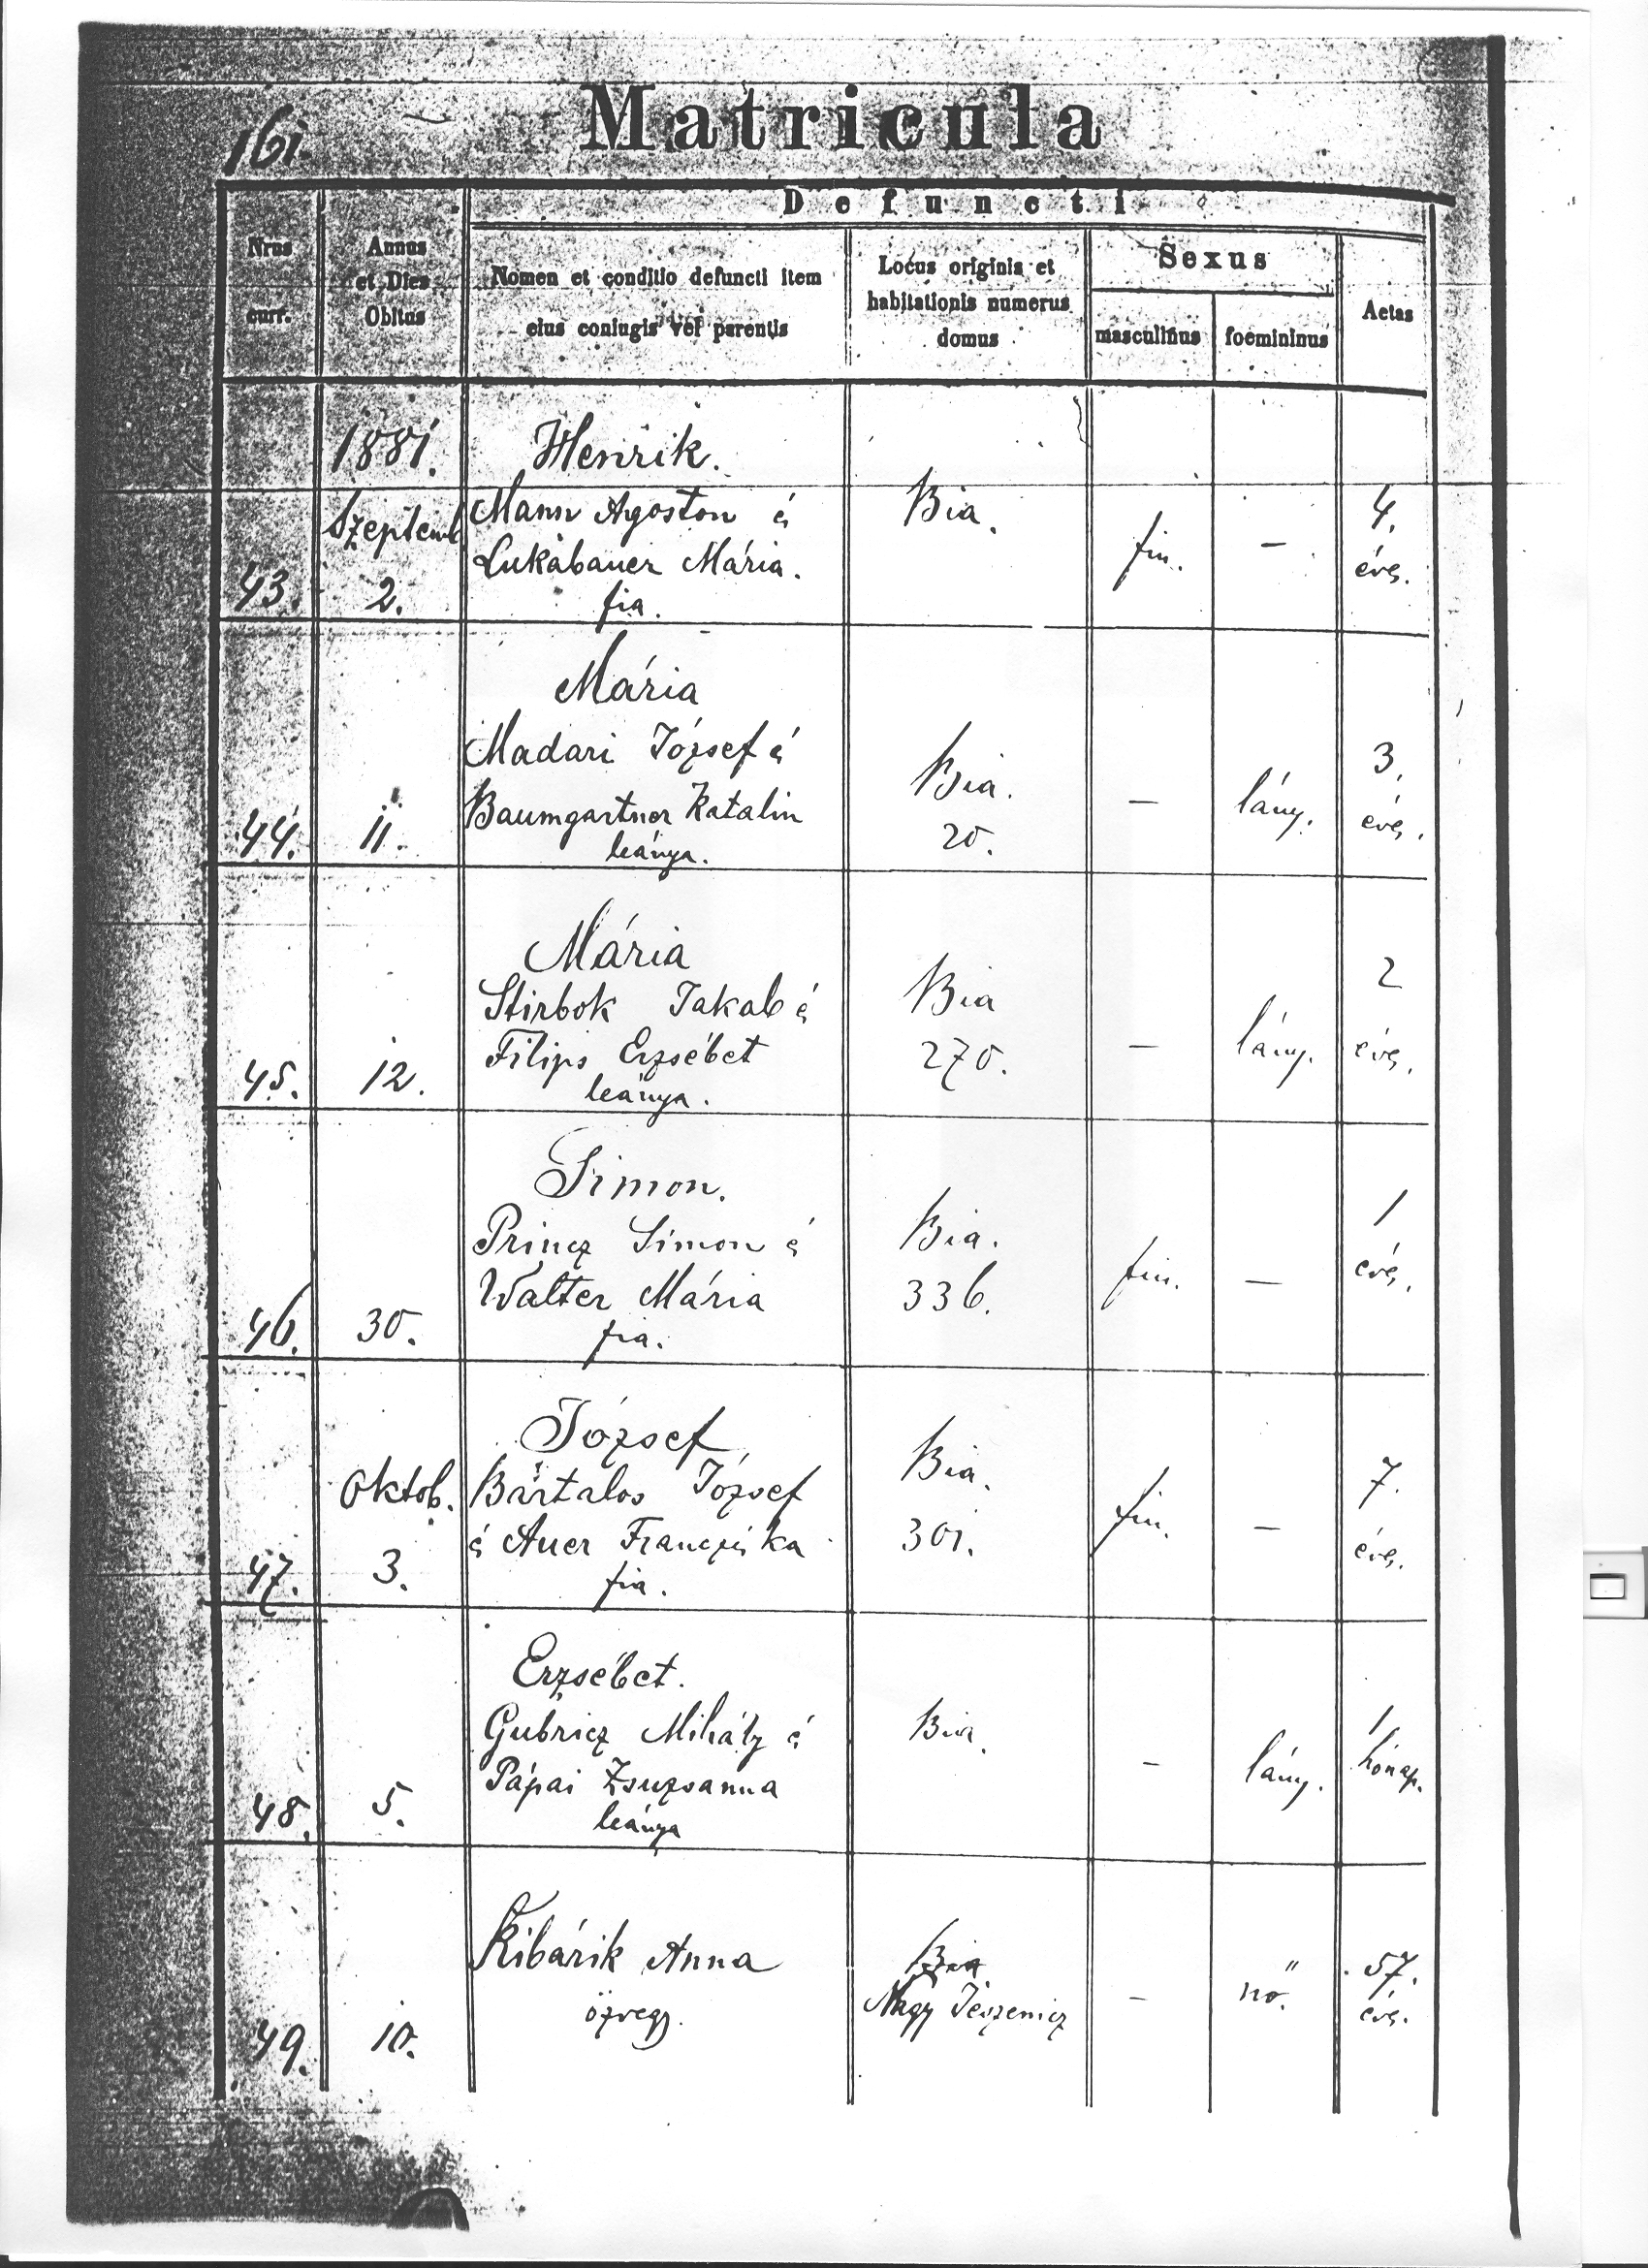 161.
Matricula
Defuncti
Nrus
curr.
Annus
et Dies
Obitus
Nomen et conditio defuncti item
eius coniugis vel parentis
Locus originis et
habitationis numerus
domus
Sexus
masculinus
foemininus
Aetas
1881.
Szeptemb
43.
2.
Henrik.
Mann Agoston é
Lukabauer Mária.
fia.
Bia.
fiu.
–
4.
éves.
44.
11.
Mária
Madari József é
Baumgartner Katalin
leánya.
Bia.
20.
–
lány.
3.
éves.
45.
12.
Mária
Stirbok Jakab é
Filips Erzsébet
leánya.
Bia
270.
–
lány.
2
éves.
46.
30.
Simon.
Princz Simon é
Walter Mária
fia.
Bia.
336.
fiu.
–
1
éves.
47.
Oktob.
3.
József
Bartalos József
é Auer Francziska
fia.
Bia.
301.
fiu.
–
7.
éves.
48.
5.
Erzsébet.
Gubricz Mihály é
Pápai Zsuzsanna
leánya
Bia.
–
lány.
1
hónap.
49.
10.
Ribárik Anna
özvegy.
Bia
Nagy Jeszenicz
–
nő.
57.
éves.